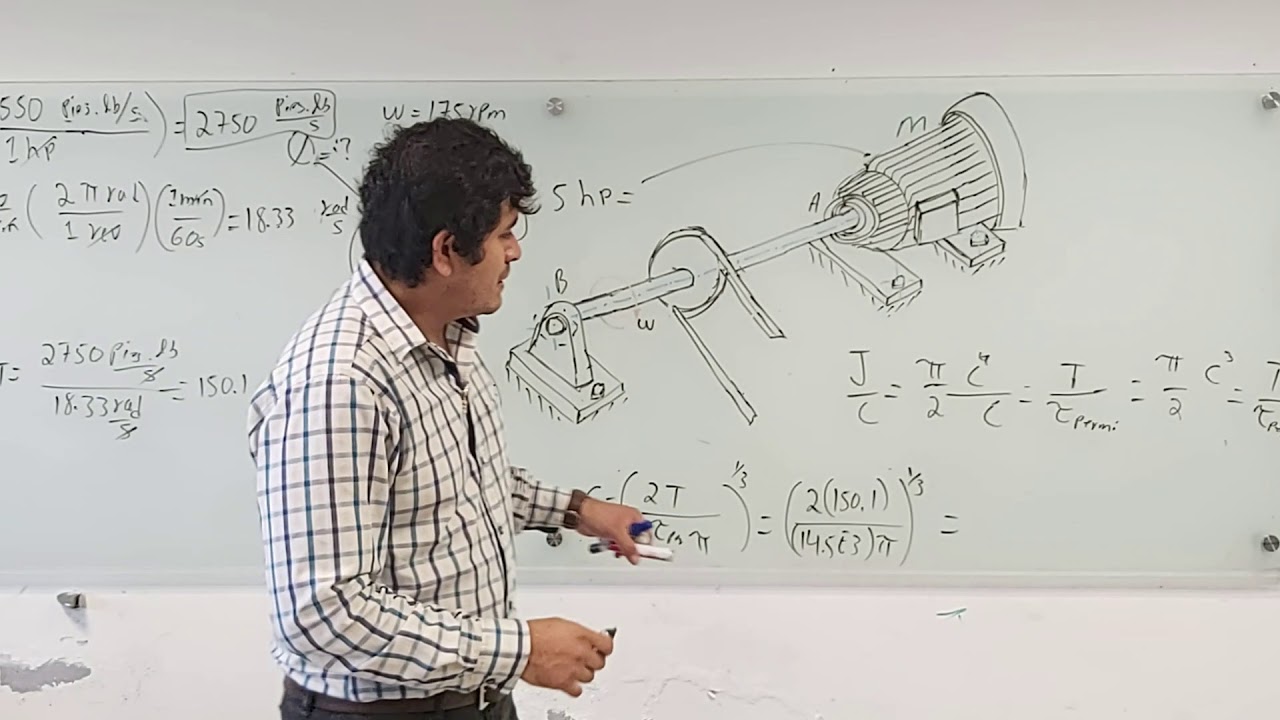 550 pies.lb/s
1 hp
) = 2750 pies.lb/s
Ø = ¿?
W = 175 rpm
(2π rad / 1 rev)(1 min / 60 s) = 18.33 rad/s
T = 2750 pies.lb/s / 18.33 rad/s = 150.1
5 hp =
M
A
B
w
J/C = π/2 C⁴/C = T/τpermi = π/2 C³ =
C = (2T / τper π)^1/3 = (2(150.1) / (14.5E3)π)^1/3 =